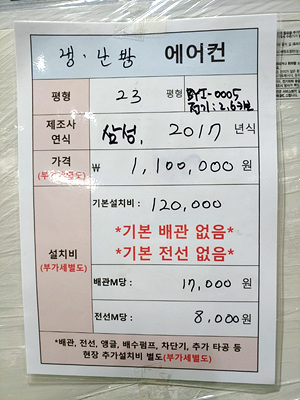 냉·난방 에어컨
평형 23 평형 BYI-0005
전기: 2.6키로
제조사
연식 삼성, 2017 년식
가격
(부가세별도) ₩ 1,100,000 원
설치비
(부가세별도)
기본설치비 : 120,000
*기본 배관 없음*
*기본 전선 없음*
배관M당 : 17,000 원
전선M당 : 8,000 원
*배관, 전선, 앵글, 배수펌프, 차단기, 추가 타공 등
현장 추가설치비 별도(부가세별도)